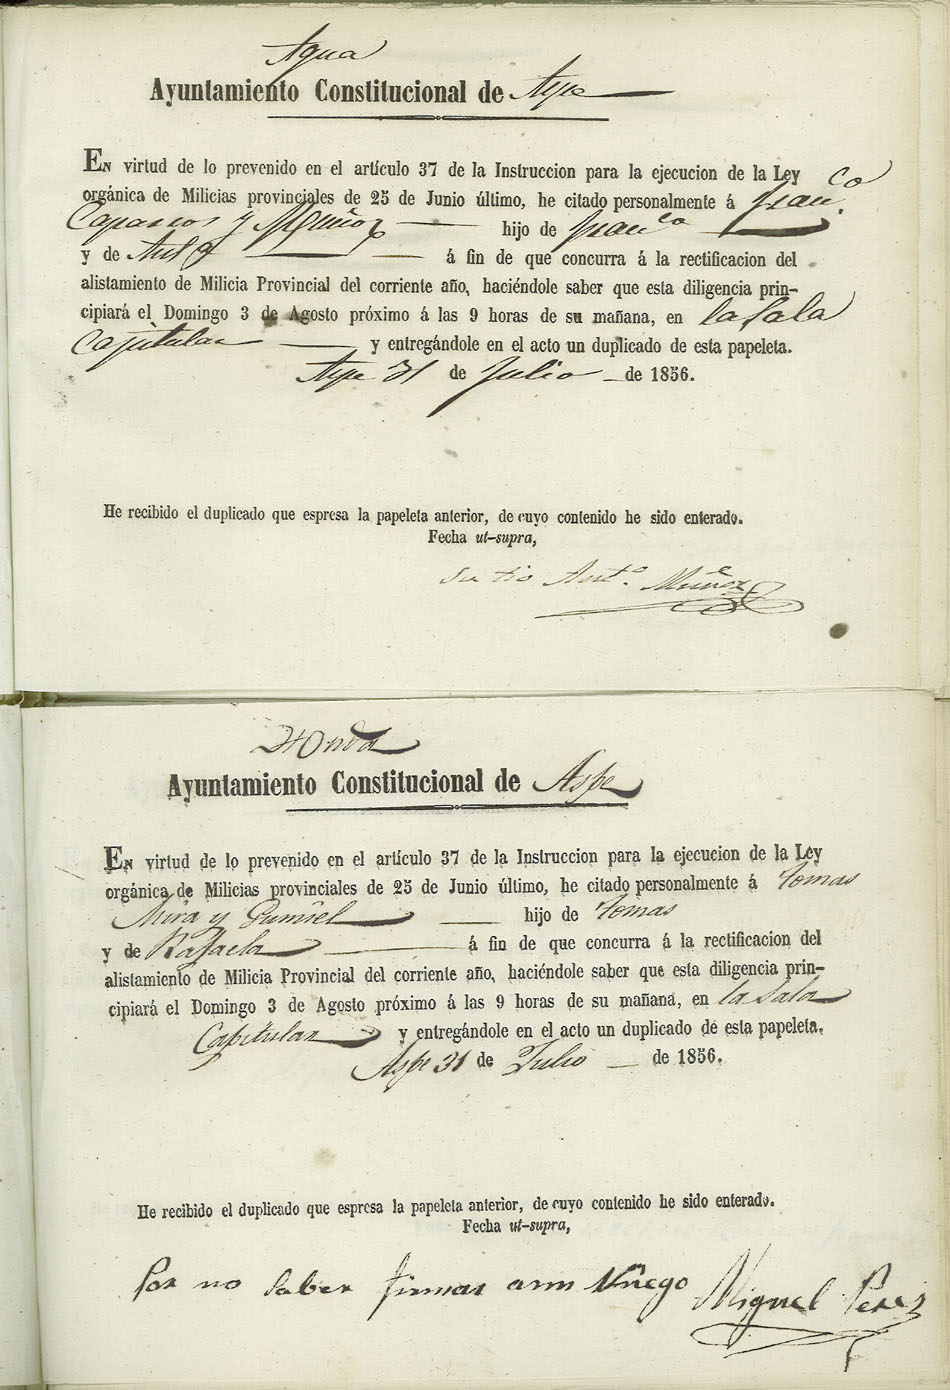 Agua
Ayuntamiento Constitucional de Aspe
En virtud de lo prevenido en el artículo 37 de la Instruccion para la ejecucion de la Ley
orgánica de Milicias provinciales de 25 de Junio último, he citado personalmente á Franco.
Caparros y Muñoz hijo de Franco
y de á fin de que concurra á la rectificacion del
alistamiento de Milicia Provincial del corriente año, haciéndole saber que esta diligencia prin-
cipiará el Domingo 3 de Agosto próximo á las 9 horas de su mañana, en la Sala
Capitular y entregándole en el acto un duplicado de esta papeleta.
Aspe 31 de Julio de 1856.
He recibido el duplicado que espresa la papeleta anterior, de cuyo contenido he sido enterado.
Fecha ut-supra,
Su tio Anto. Muñoz
Honda
Ayuntamiento Constitucional de Aspe
En virtud de lo prevenido en el artículo 37 de la Instruccion para la ejecucion de la Ley
orgánica de Milicias provinciales de 25 de Junio último, he citado personalmente á tomas
Mira y hijo de tomas
y de Rafaela á fin de que concurra á la rectificacion del
alistamiento de Milicia Provincial del corriente año, haciéndole saber que esta diligencia prin-
cipiará el Domingo 3 de Agosto próximo á las 9 horas de su mañana, en la Sala
Capitular y entregándole en el acto un duplicado de esta papeleta.
Aspe 31 de Julio de 1856.
He recibido el duplicado que espresa la papeleta anterior, de cuyo contenido he sido enterado.
Fecha ut-supra,
Por no saber firmar Miguel Perez